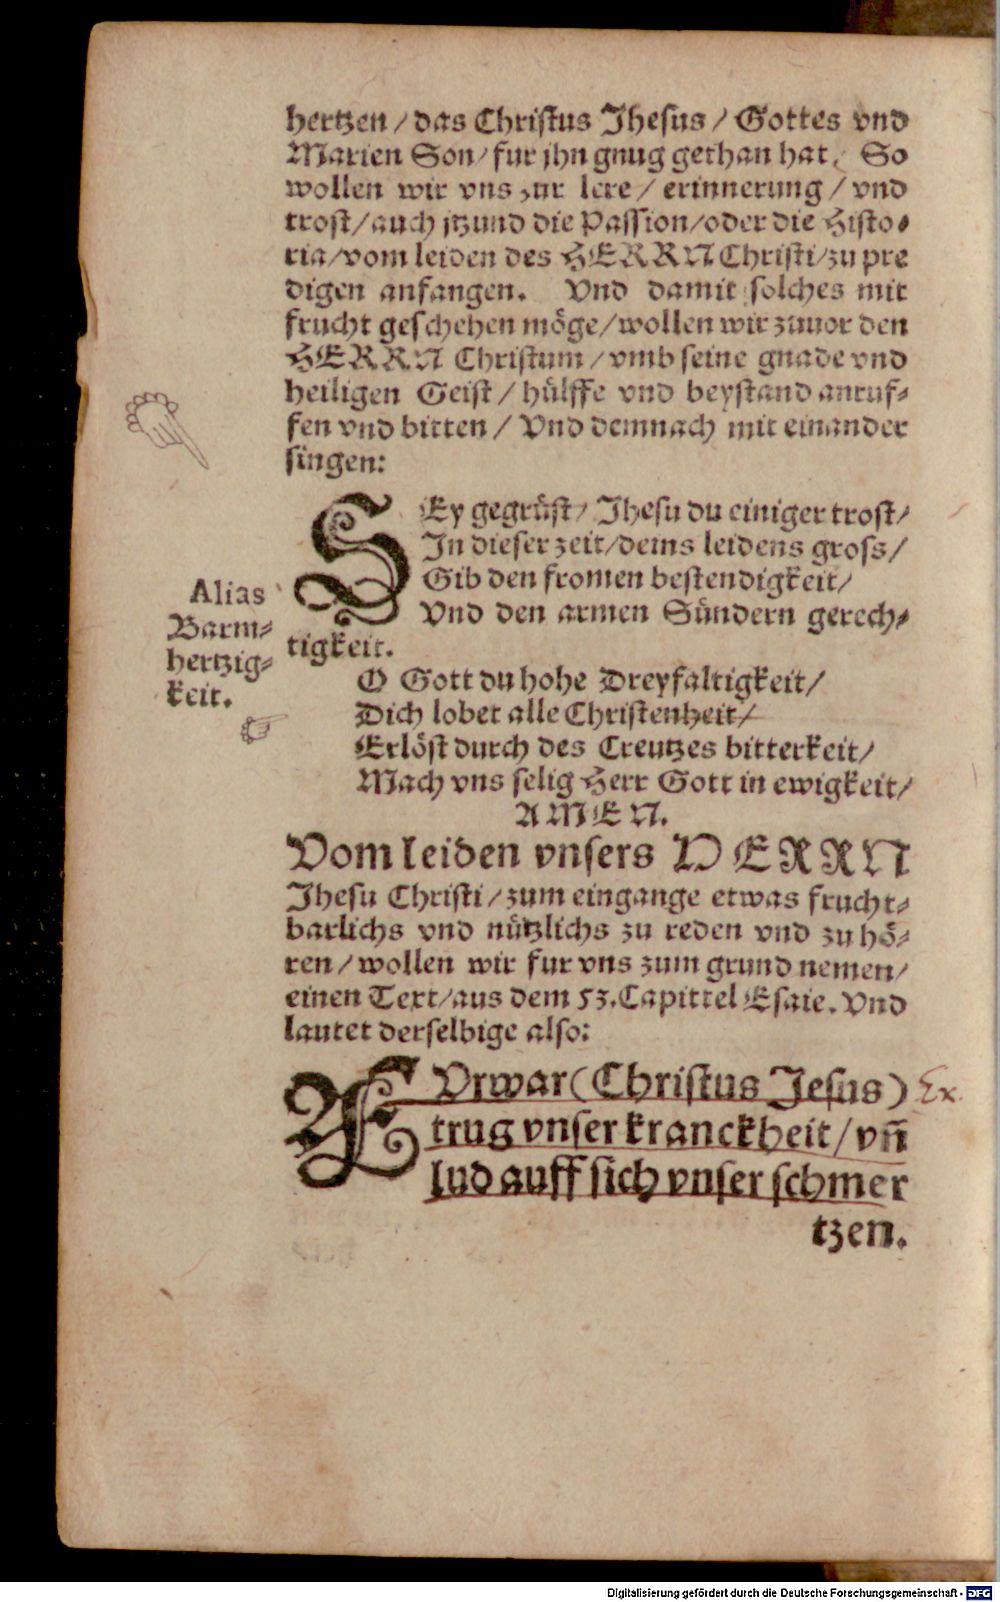 hertzen / das Christus Jhesus / Gottes vnd
Marien Son / fur jhn gnug gethan hat. So
wollen wir vns zur lere / erinnerung / vnd
trost / auch jtzund die Passion / oder die Histo-
ria / vom leiden des HERRN Christi / zu pre
digen anfangen. Vnd damit solches mit
frucht geschehen möge / wollen wir zuuor den
HERRN Christum / vmb seine gnade vnd
heiligen Geist / hülffe vnd beystand anruf-
fen vnd bitten / Vnd demnach mit einander
singen:
SEy gegrüst / Jhesu du einiger trost /
In dieser zeit / deins leidens gross /
Gib den fromen bestendigkeit /
Vnd den armen Sündern gerech-
tigkeit.
Alias
Barm-
hertzig-
keit.
O Gott du hohe Dreyfaltigkeit /
Dich lobet alle Christenheit /
Erlöst durch des Creutzes bitterkeit /
Mach vns selig Herr Gott in ewigkeit /
AMEN.
Vom leiden vnsers HERRN
Jhesu Christi / zum eingange etwas frucht-
barlichs vnd nützlichs zu reden vnd zu hö-
ren / wollen wir fur vns zum grund nemen /
einen Text / aus dem 53. Capittel Esaie. Vnd
lautet derselbige also:
FVrwar (Christus Jesus) Ex.
trug vnser kranckheit / vñ
lud auff sich vnser schmer
tzen.
Digitalisierung gefördert durch die Deutsche Forschungsgemeinschaft - DFG